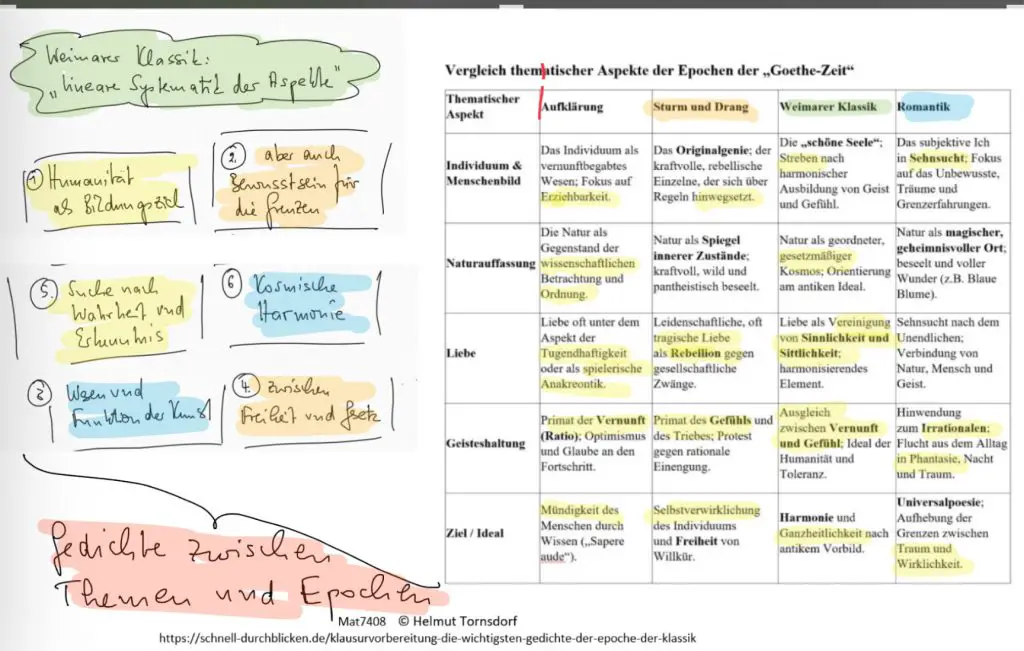 Weimarer Klassik:
"lineare Systematik der Aspekte"
① Humanität
als Bildungsziel
2. aber auch
Bewusstsein für
die Grenzen
5. Suche nach
Wahrheit und
Erkenntnis
6 Kosmische
Harmonie
3 Wesen und
Funktion der Kunst
4. zwischen
Freiheit und Gesetz
Gedichte zwischen
Themen und Epochen
Vergleich thematischer Aspekte der Epochen der „Goethe-Zeit“
Thematischer
Aspekt
Aufklärung
Sturm und Drang
Weimarer Klassik
Romantik
Individuum &
Menschenbild
Das Individuum als
vernunftbegabtes
Wesen; Fokus auf
Erziehbarkeit.
Das Originalgenie; der
kraftvolle, rebellische
Einzelne, der sich über
Regeln hinwegsetzt.
Die „schöne Seele“;
Streben nach
harmonischer
Ausbildung von Geist
und Gefühl.
Das subjektive Ich
in Sehnsucht; Fokus
auf das Unbewusste,
Träume und
Grenzerfahrungen.
Naturauffassung
Die Natur als
Gegenstand der
wissenschaftlichen
Betrachtung und
Ordnung.
Natur als Spiegel
innerer Zustände;
kraftvoll, wild und
pantheistisch beseelt.
Natur als geordneter,
gesetzmäßiger
Kosmos; Orientierung
am antiken Ideal.
Natur als magischer,
geheimnisvoller Ort;
beseelt und voller
Wunder (z.B. Blaue
Blume).
Liebe
Liebe oft unter dem
Aspekt der
Tugendhaftigkeit
oder als spielerische
Anakreontik.
Leidenschaftliche, oft
tragische Liebe
als Rebellion gegen
gesellschaftliche
Zwänge.
Liebe als Vereinigung
von Sinnlichkeit und
Sittlichkeit;
harmonisierendes
Element.
Sehnsucht nach dem
Unendlichen;
Verbindung von
Natur, Mensch und
Geist.
Geisteshaltung
Primat der Vernunft
(Ratio); Optimismus
und Glaube an den
Fortschritt.
Primat des Gefühls und
des Triebes; Protest
gegen rationale
Einengung.
Ausgleich
zwischen Vernunft
und Gefühl; Ideal der
Humanität und
Toleranz.
Hinwendung
zum Irrationalen;
Flucht aus dem Alltag
in Phantasie, Nacht
und Traum.
Ziel / Ideal
Mündigkeit des
Menschen durch
Wissen („Sapere
aude“).
Selbstverwirklichung
des Individuums
und Freiheit von
Willkür.
Harmonie und
Ganzheitlichkeit nach
antikem Vorbild.
Universalpoesie;
Aufhebung der
Grenzen zwischen
Traum und
Wirklichkeit.
Mat7408 © Helmut Tornsdorf
https://schnell-durchblicken.de/klausurvorbereitung-die-wichtigsten-gedichte-der-epoche-der-klassik